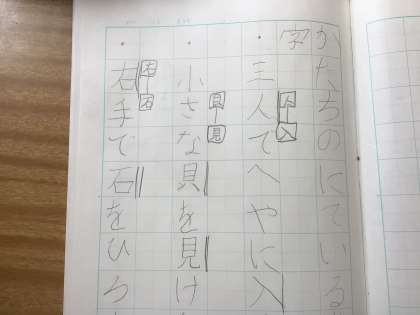 かたちのにている
字
人入
・三人でへやに入
貝見
・小さな貝を見け
右石
・右手で石をひろ